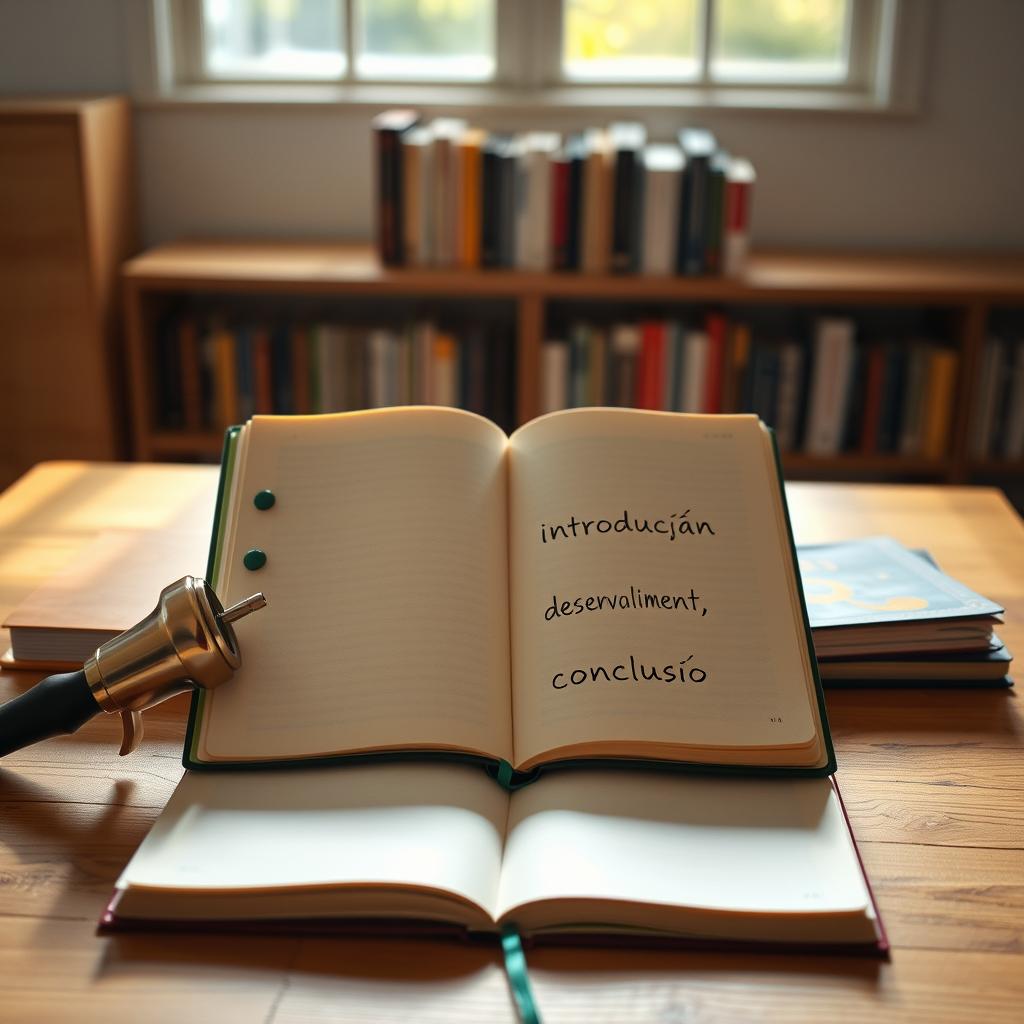 introducján
deservaliment,
conclusío